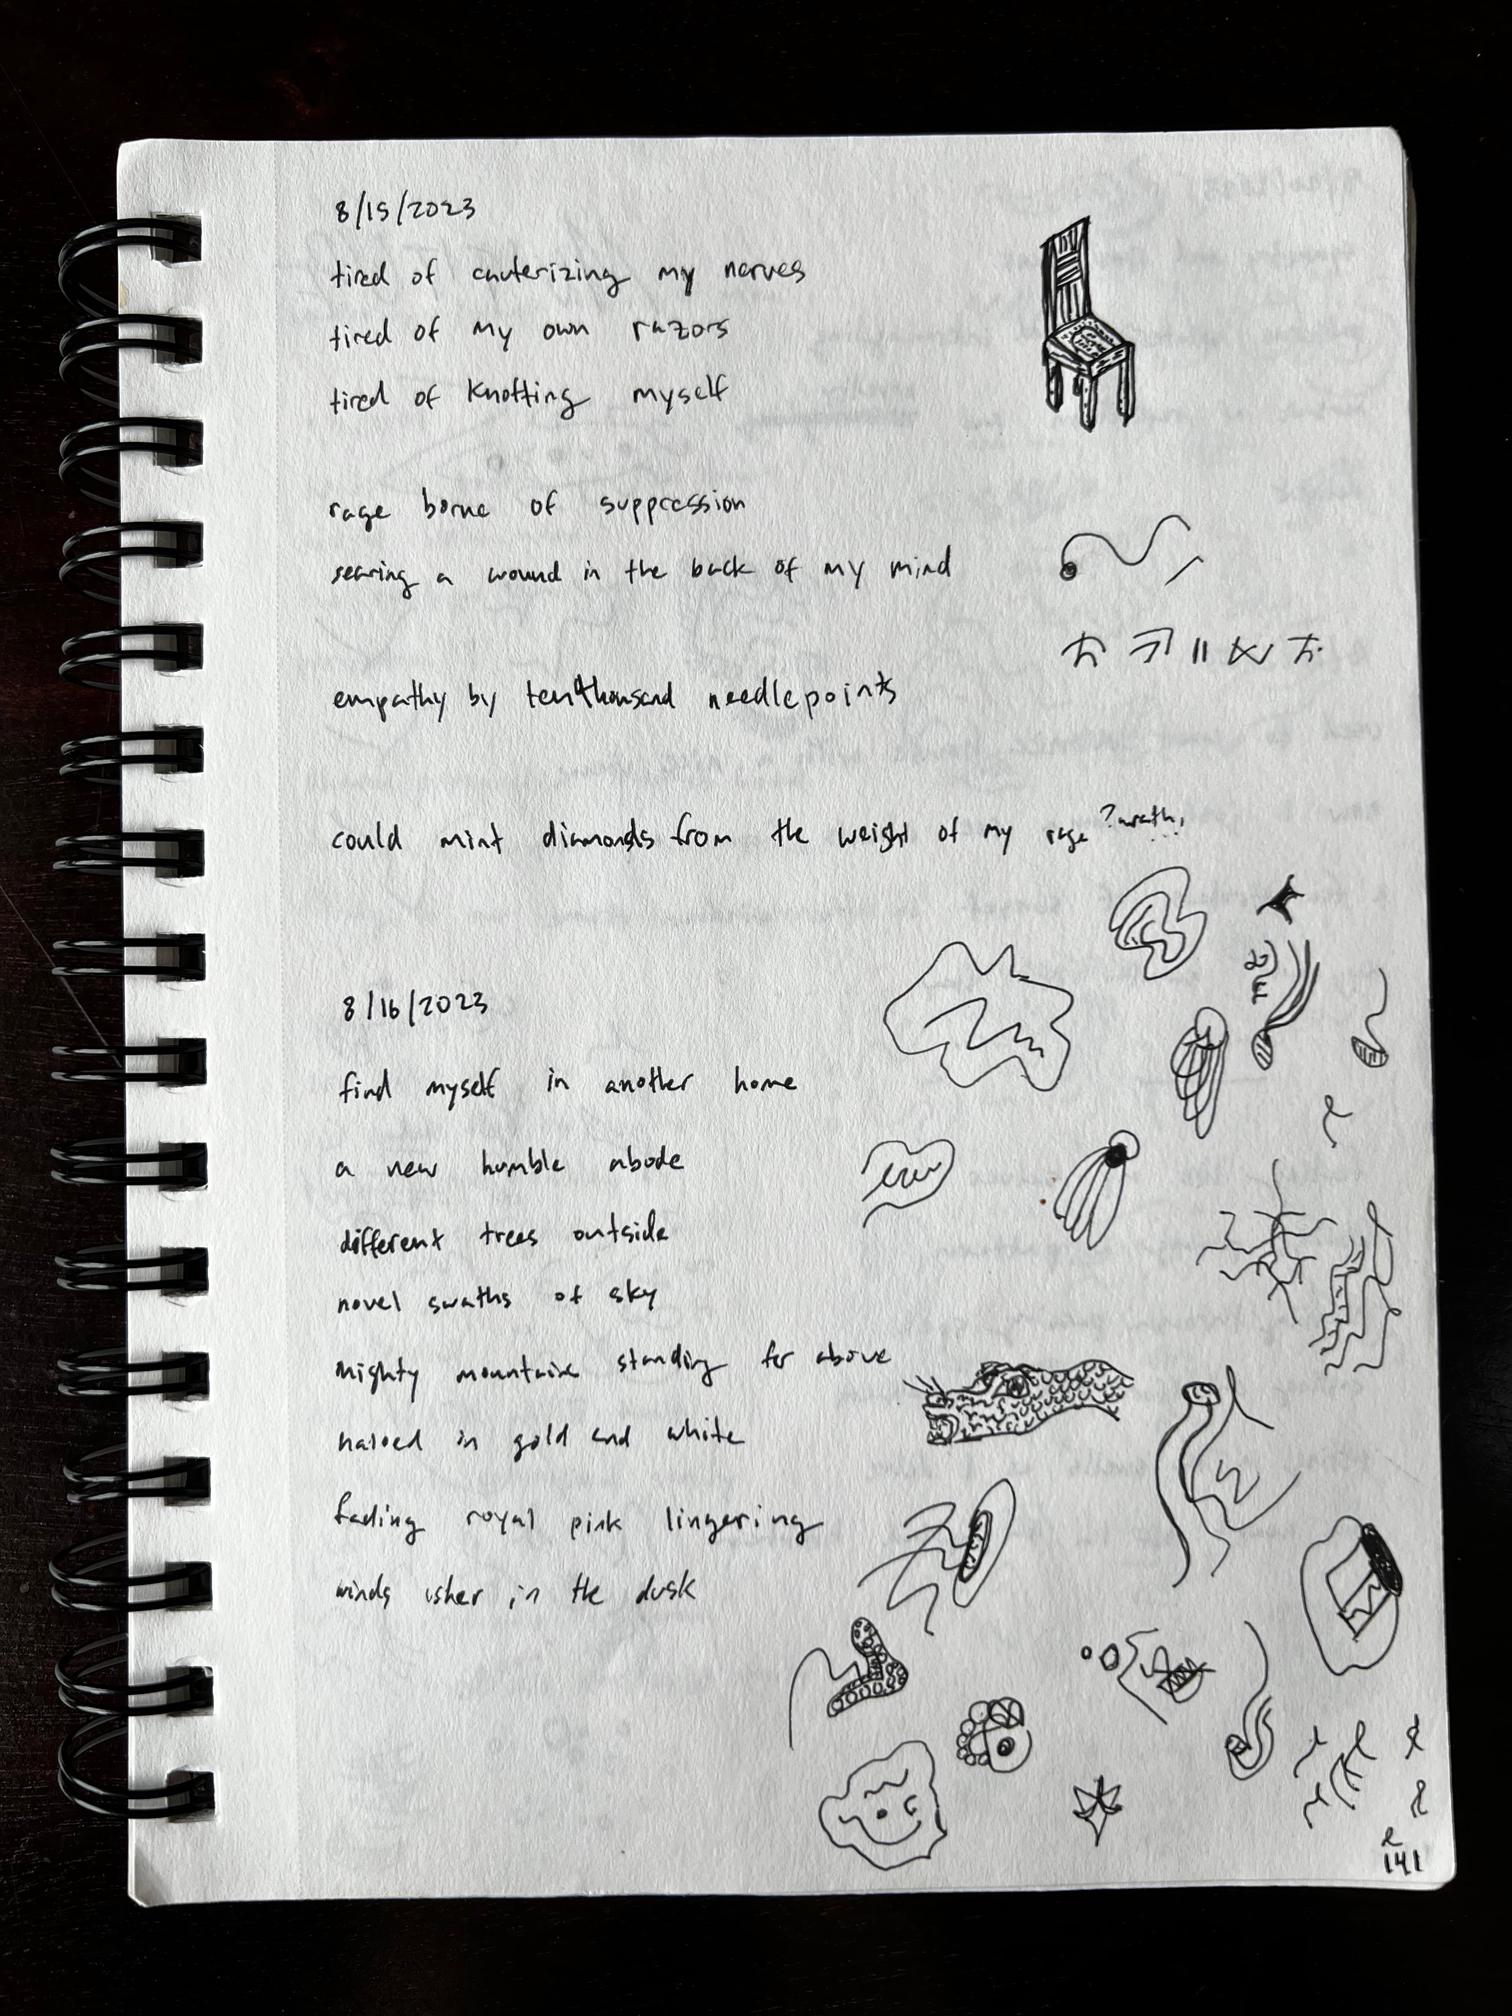 8/15/2023
tired of cauterizing my nerves
tired of my own razors
tired of knotting myself
rage borne of suppression
searing a wound in the back of my mind
empathy by ten thousand needlepoints
could mint diamonds from the weight of my rage ?wrath?
8/16/2023
find myself in another home
a new humble abode
different trees outside
novel swaths of sky
mighty mountains standing far above
haloed in gold and white
fading royal pink lingering
winds usher in the dusk
141